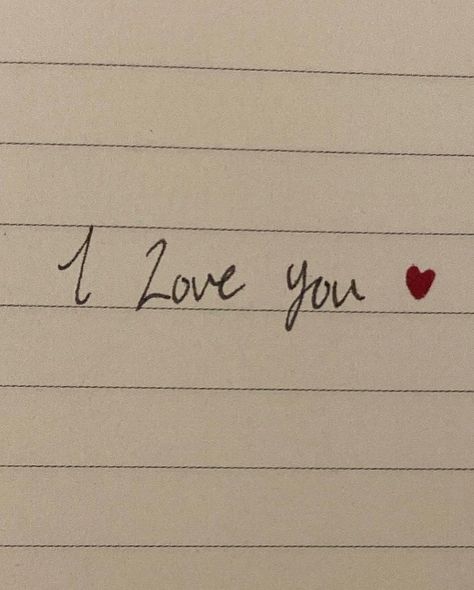 I Love you ♥